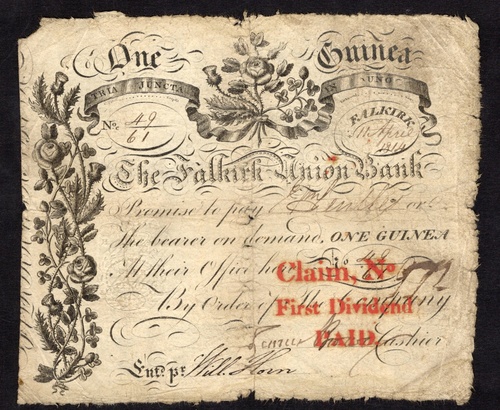 One Guinea
TRIA JUNCTA IN UNO
No. 49/61
FALKIRK
11 April
1814
The Falkirk Union Bank
Promise to pay or
the bearer on demand, ONE GUINEA
At their Office here
Claim, No
By Order of the Company
First Dividend
PAID
Cashier
Ent. pr. Will. Horn